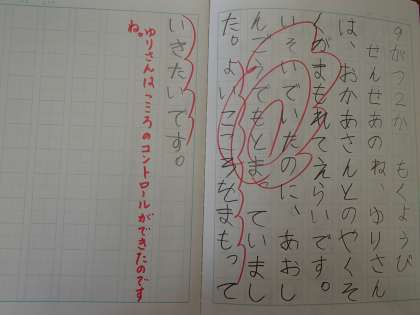 9がつ2か もくようび
せんせあのね、ゆりさん
は、おかあさんとのやくそ
くがまもれてえらいです。
いそいでいたのに、あおし
んごうでもとまっていまし
た。よいこころをまもって
いきたいです。
ゆりさんは、こころのコントロールができたのです
ね。